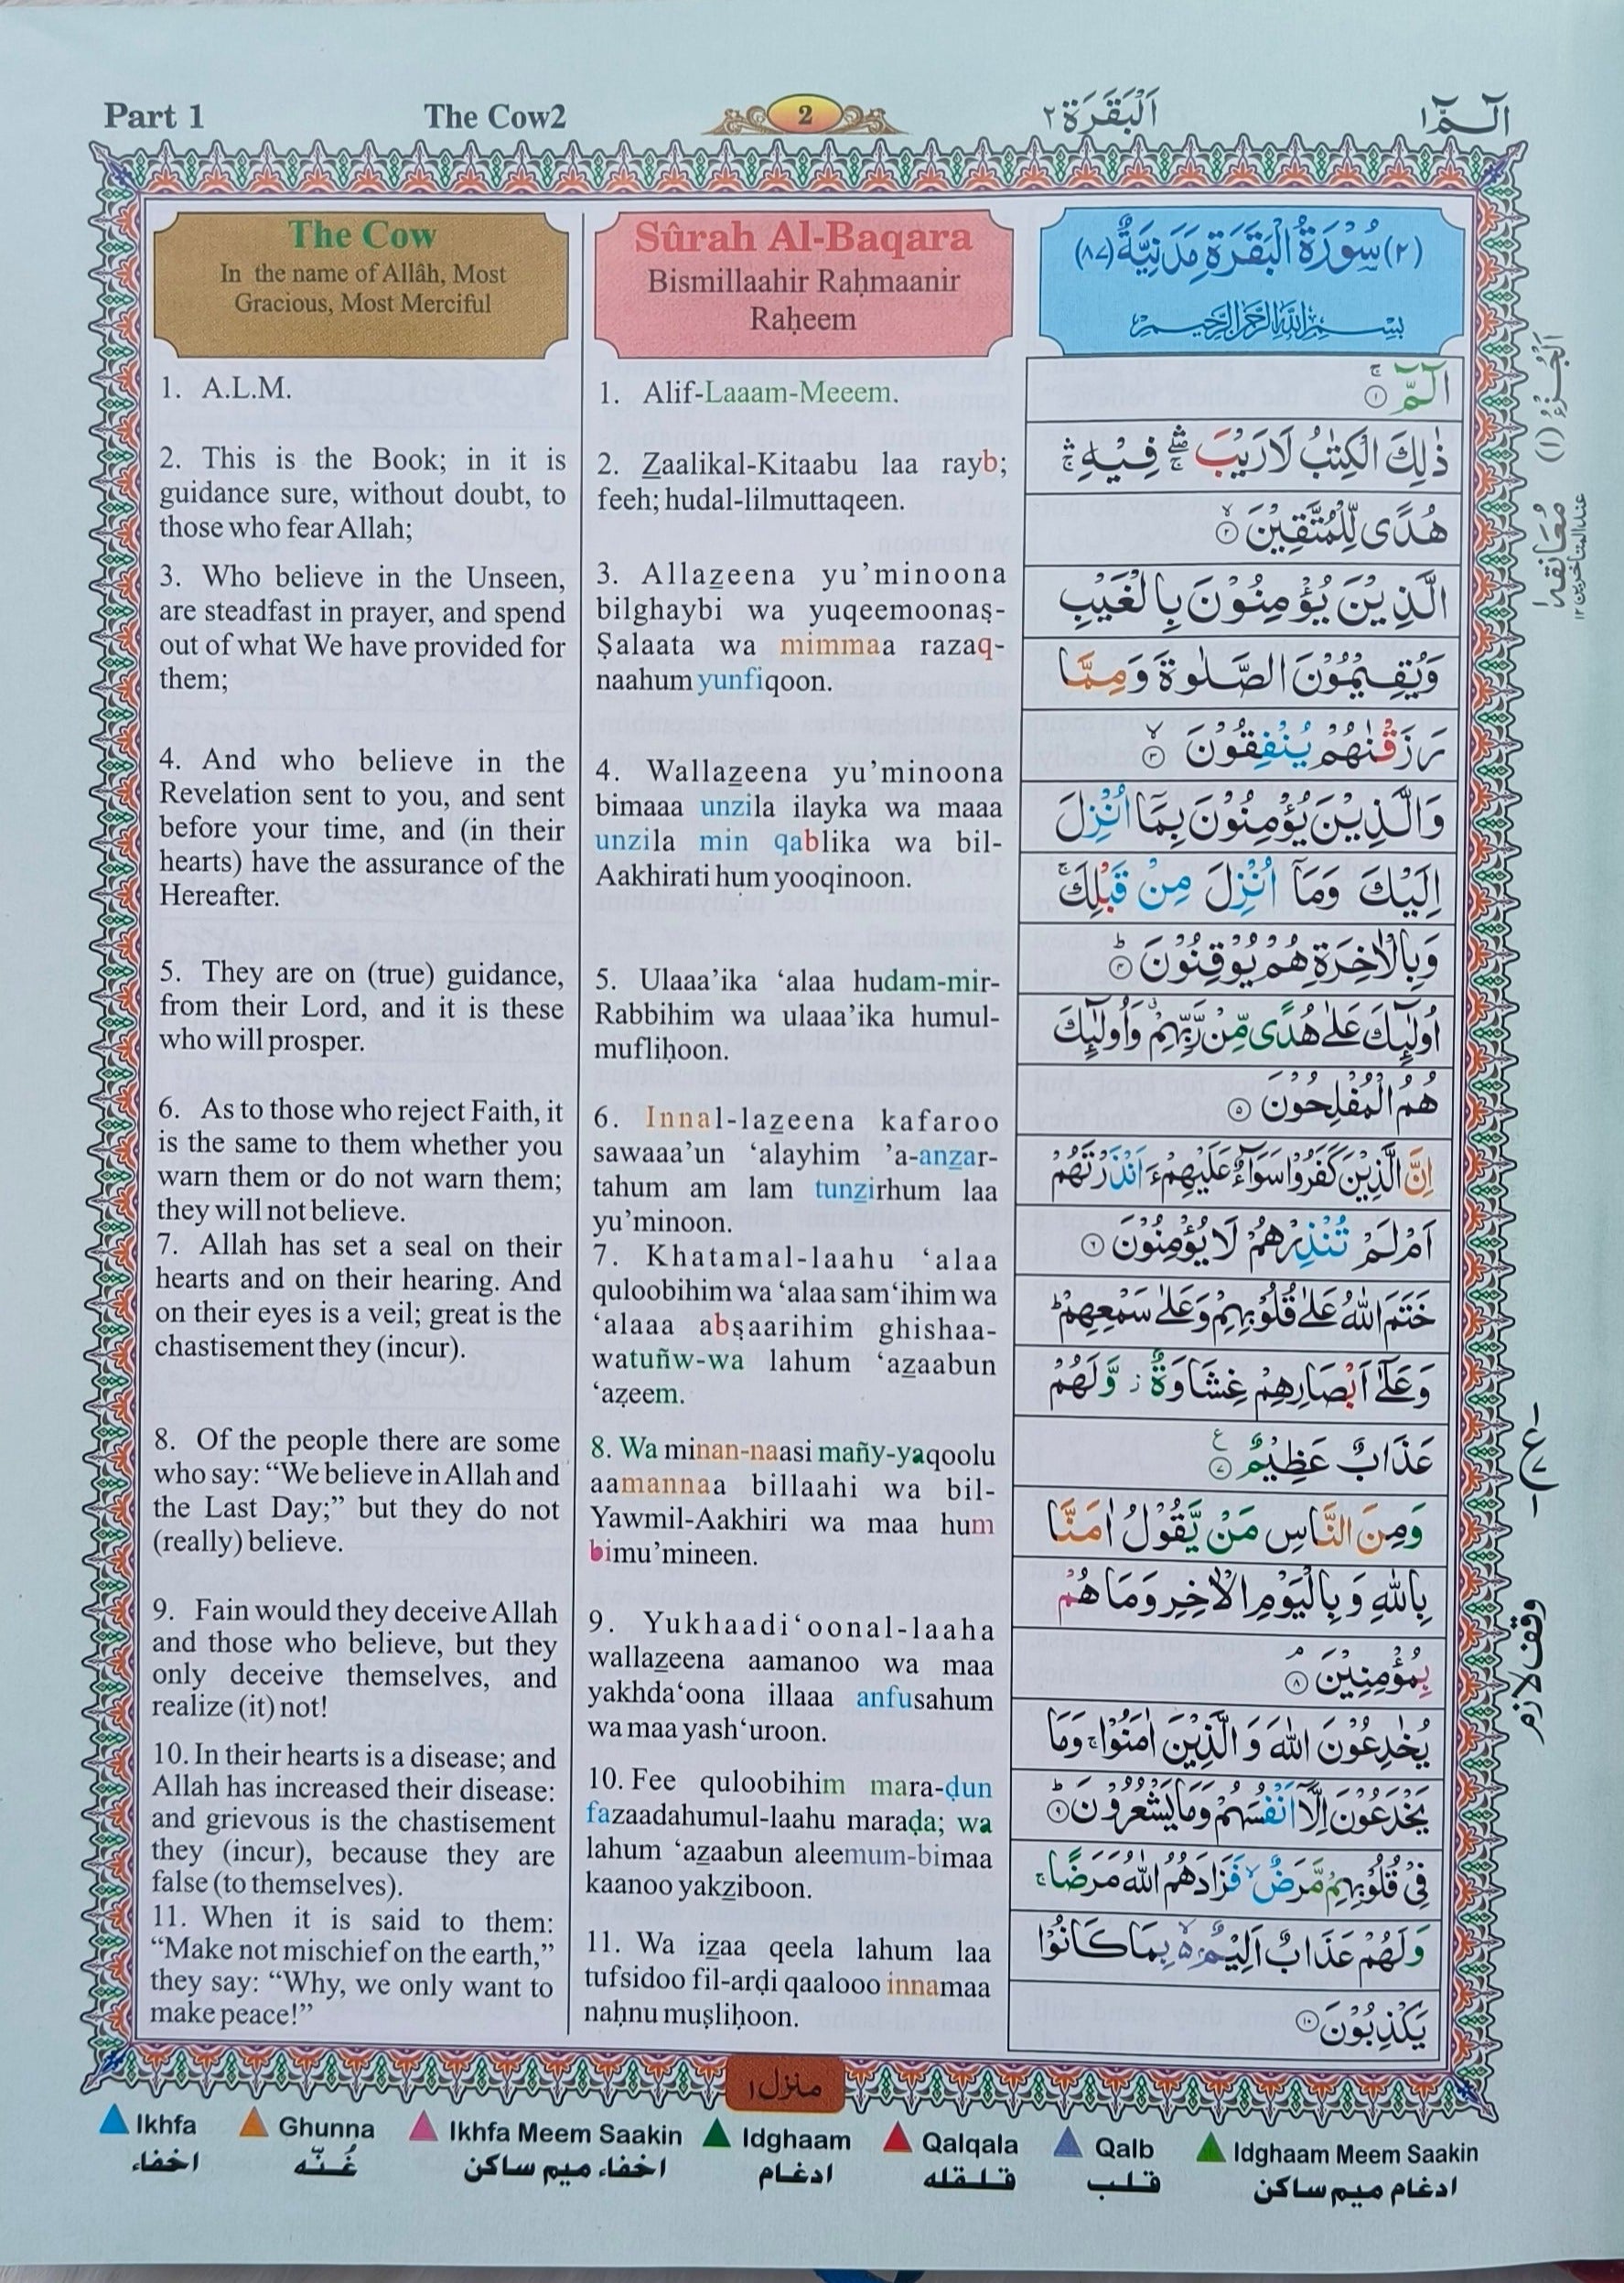 Part 1
The Cow2
2
اَلْبَقَرَة ٢
الٓـمّٓ ١
The Cow
In the name of Allâh, Most
Gracious, Most Merciful
1. A.L.M.
2. This is the Book; in it is
guidance sure, without doubt, to
those who fear Allah;
3. Who believe in the Unseen,
are steadfast in prayer, and spend
out of what We have provided for
them;
4. And who believe in the
Revelation sent to you, and sent
before your time, and (in their
hearts) have the assurance of the
Hereafter.
5. They are on (true) guidance,
from their Lord, and it is these
who will prosper.
6. As to those who reject Faith, it
is the same to them whether you
warn them or do not warn them;
they will not believe.
7. Allah has set a seal on their
hearts and on their hearing. And
on their eyes is a veil; great is the
chastisement they (incur).
8. Of the people there are some
who say: “We believe in Allah and
the Last Day;” but they do not
(really) believe.
9. Fain would they deceive Allah
and those who believe, but they
only deceive themselves, and
realize (it) not!
10. In their hearts is a disease; and
Allah has increased their disease:
and grievous is the chastisement
they (incur), because they are
false (to themselves).
11. When it is said to them:
“Make not mischief on the earth,”
they say: “Why, we only want to
make peace!”
Sûrah Al-Baqara
Bismillaahir Raḥmaanir
Raḥeem
1. Alif-Laaam-Meeem.
2. Z̲aalikal-Kitaabu laa rayb;
feeh; hudal-lilmuttaqeen.
3. Allaz̲eena yu’minoona
bilghaybi wa yuqeemoonaṣ-
Ṣalaata wa mimmaa razaq-
naahum yunfiqoon.
4. Wallaz̲eena yu’minoona
bimaaa unzila ilayka wa maaa
unzila min qablika wa bil-
Aakhirati hum yooqinoon.
5. Ulaaa’ika ‘alaa hudam-mir-
Rabbihim wa ulaaa’ika humul-
mufliḥoon.
6. Innal-laz̲eena kafaroo
sawaaa’un ‘alayhim ’a-anz̲ar-
tahum am lam tunz̲irhum laa
yu’minoon.
7. Khatamal-laahu ‘alaa
quloobihim wa ‘alaa sam‘ihim wa
‘alaaa abṣaarihim ghishaa-
watuñw-wa lahum ‘az̲aabun
‘aẓeem.
8. Wa minan-naasi mañy-yaqoolu
aamannaa billaahi wa bil-
Yawmil-Aakhiri wa maa hum
bimu’mineen.
9. Yukhaadi‘oonal-laaha
wallaz̲eena aamanoo wa maa
yakhda‘oona illaaa anfusahum
wa maa yash‘uroon.
10. Fee quloobihim mara-ḍun
fazaadahumul-laahu maraḍa; wa
lahum ‘az̲aabun aleemum-bimaa
kaanoo yakz̲iboon.
11. Wa iz̲aa qeela lahum laa
tufsidoo fil-arḍi qaalooo innamaa
naḥnu muṣliḥoon.
(٢) سُوْرَةُ الْبَقَرَةِ مَدَنِيَّةٌ (٨٧)
بِسْمِ اللّٰهِ الرَّحْمٰنِ الرَّحِيْمِ
الٓـمّٓ ۚ ١
ذٰلِكَ الْكِتٰبُ لَا رَيْبَ ۛۖۚ فِيْهِ ۛۚ
هُدًى لِّلْمُتَّقِيْنَ ۙ ٢
الَّذِيْنَ يُؤْمِنُوْنَ بِالْغَيْبِ
وَيُقِيْمُوْنَ الصَّلٰوةَ وَمِمَّا
رَزَقْنٰهُمْ يُنْفِقُوْنَ ۙ ٣
وَالَّذِيْنَ يُؤْمِنُوْنَ بِمَآ اُنْزِلَ
اِلَيْكَ وَمَآ اُنْزِلَ مِنْ قَبْلِكَ ۚ
وَبِالْاٰخِرَةِ هُمْ يُوْقِنُوْنَ ؕ ٤
اُولٰٓئِكَ عَلٰى هُدًى مِّنْ رَّبِّهِمْ ۗ وَاُولٰٓئِكَ
هُمُ الْمُفْلِحُوْنَ ٥
اِنَّ الَّذِيْنَ كَفَرُوْا سَوَآءٌ عَلَيْهِمْ ءَاَنْذَرْتَهُمْ
اَمْ لَمْ تُنْذِرْهُمْ لَا يُؤْمِنُوْنَ ٦
خَتَمَ اللّٰهُ عَلٰى قُلُوْبِهِمْ وَعَلٰى سَمْعِهِمْ ؕ
وَعَلٰٓى اَبْصَارِهِمْ غِشَاوَةٌ ز وَّلَهُمْ
عَذَابٌ عَظِيْمٌ ٧ ع
وَمِنَ النَّاسِ مَنْ يَّقُوْلُ اٰمَنَّا
بِاللّٰهِ وَبِالْيَوْمِ الْاٰخِرِ وَمَا هُمْ
بِمُؤْمِنِيْنَ ۘ ٨
يُخٰدِعُوْنَ اللّٰهَ وَالَّذِيْنَ اٰمَنُوْا ۚ وَمَا
يَخْدَعُوْنَ اِلَّآ اَنْفُسَهُمْ وَمَا يَشْعُرُوْنَ ؕ ٩
فِيْ قُلُوْبِهِمْ مَّرَضٌ ۙ فَزَادَهُمُ اللّٰهُ مَرَضًا ۚ
وَلَهُمْ عَذَابٌ اَلِيْمٌ ۢ ۙ بِمَا كَانُوْا
يَكْذِبُوْنَ ١٠
اَلْجُـزْءُ (١)
مُعَانقة ١
عند المتأخرين ١٢
ع
٧
وقف لازم
منزل ١
Ikhfa
Ghunna
Ikhfa Meem Saakin
Idghaam
Qalqala
Qalb
Idghaam Meem Saakin
اخفاء
غُـنّه
اخفاء میم ساکن
ادغام
قلقله
قلب
ادغام میم ساکن